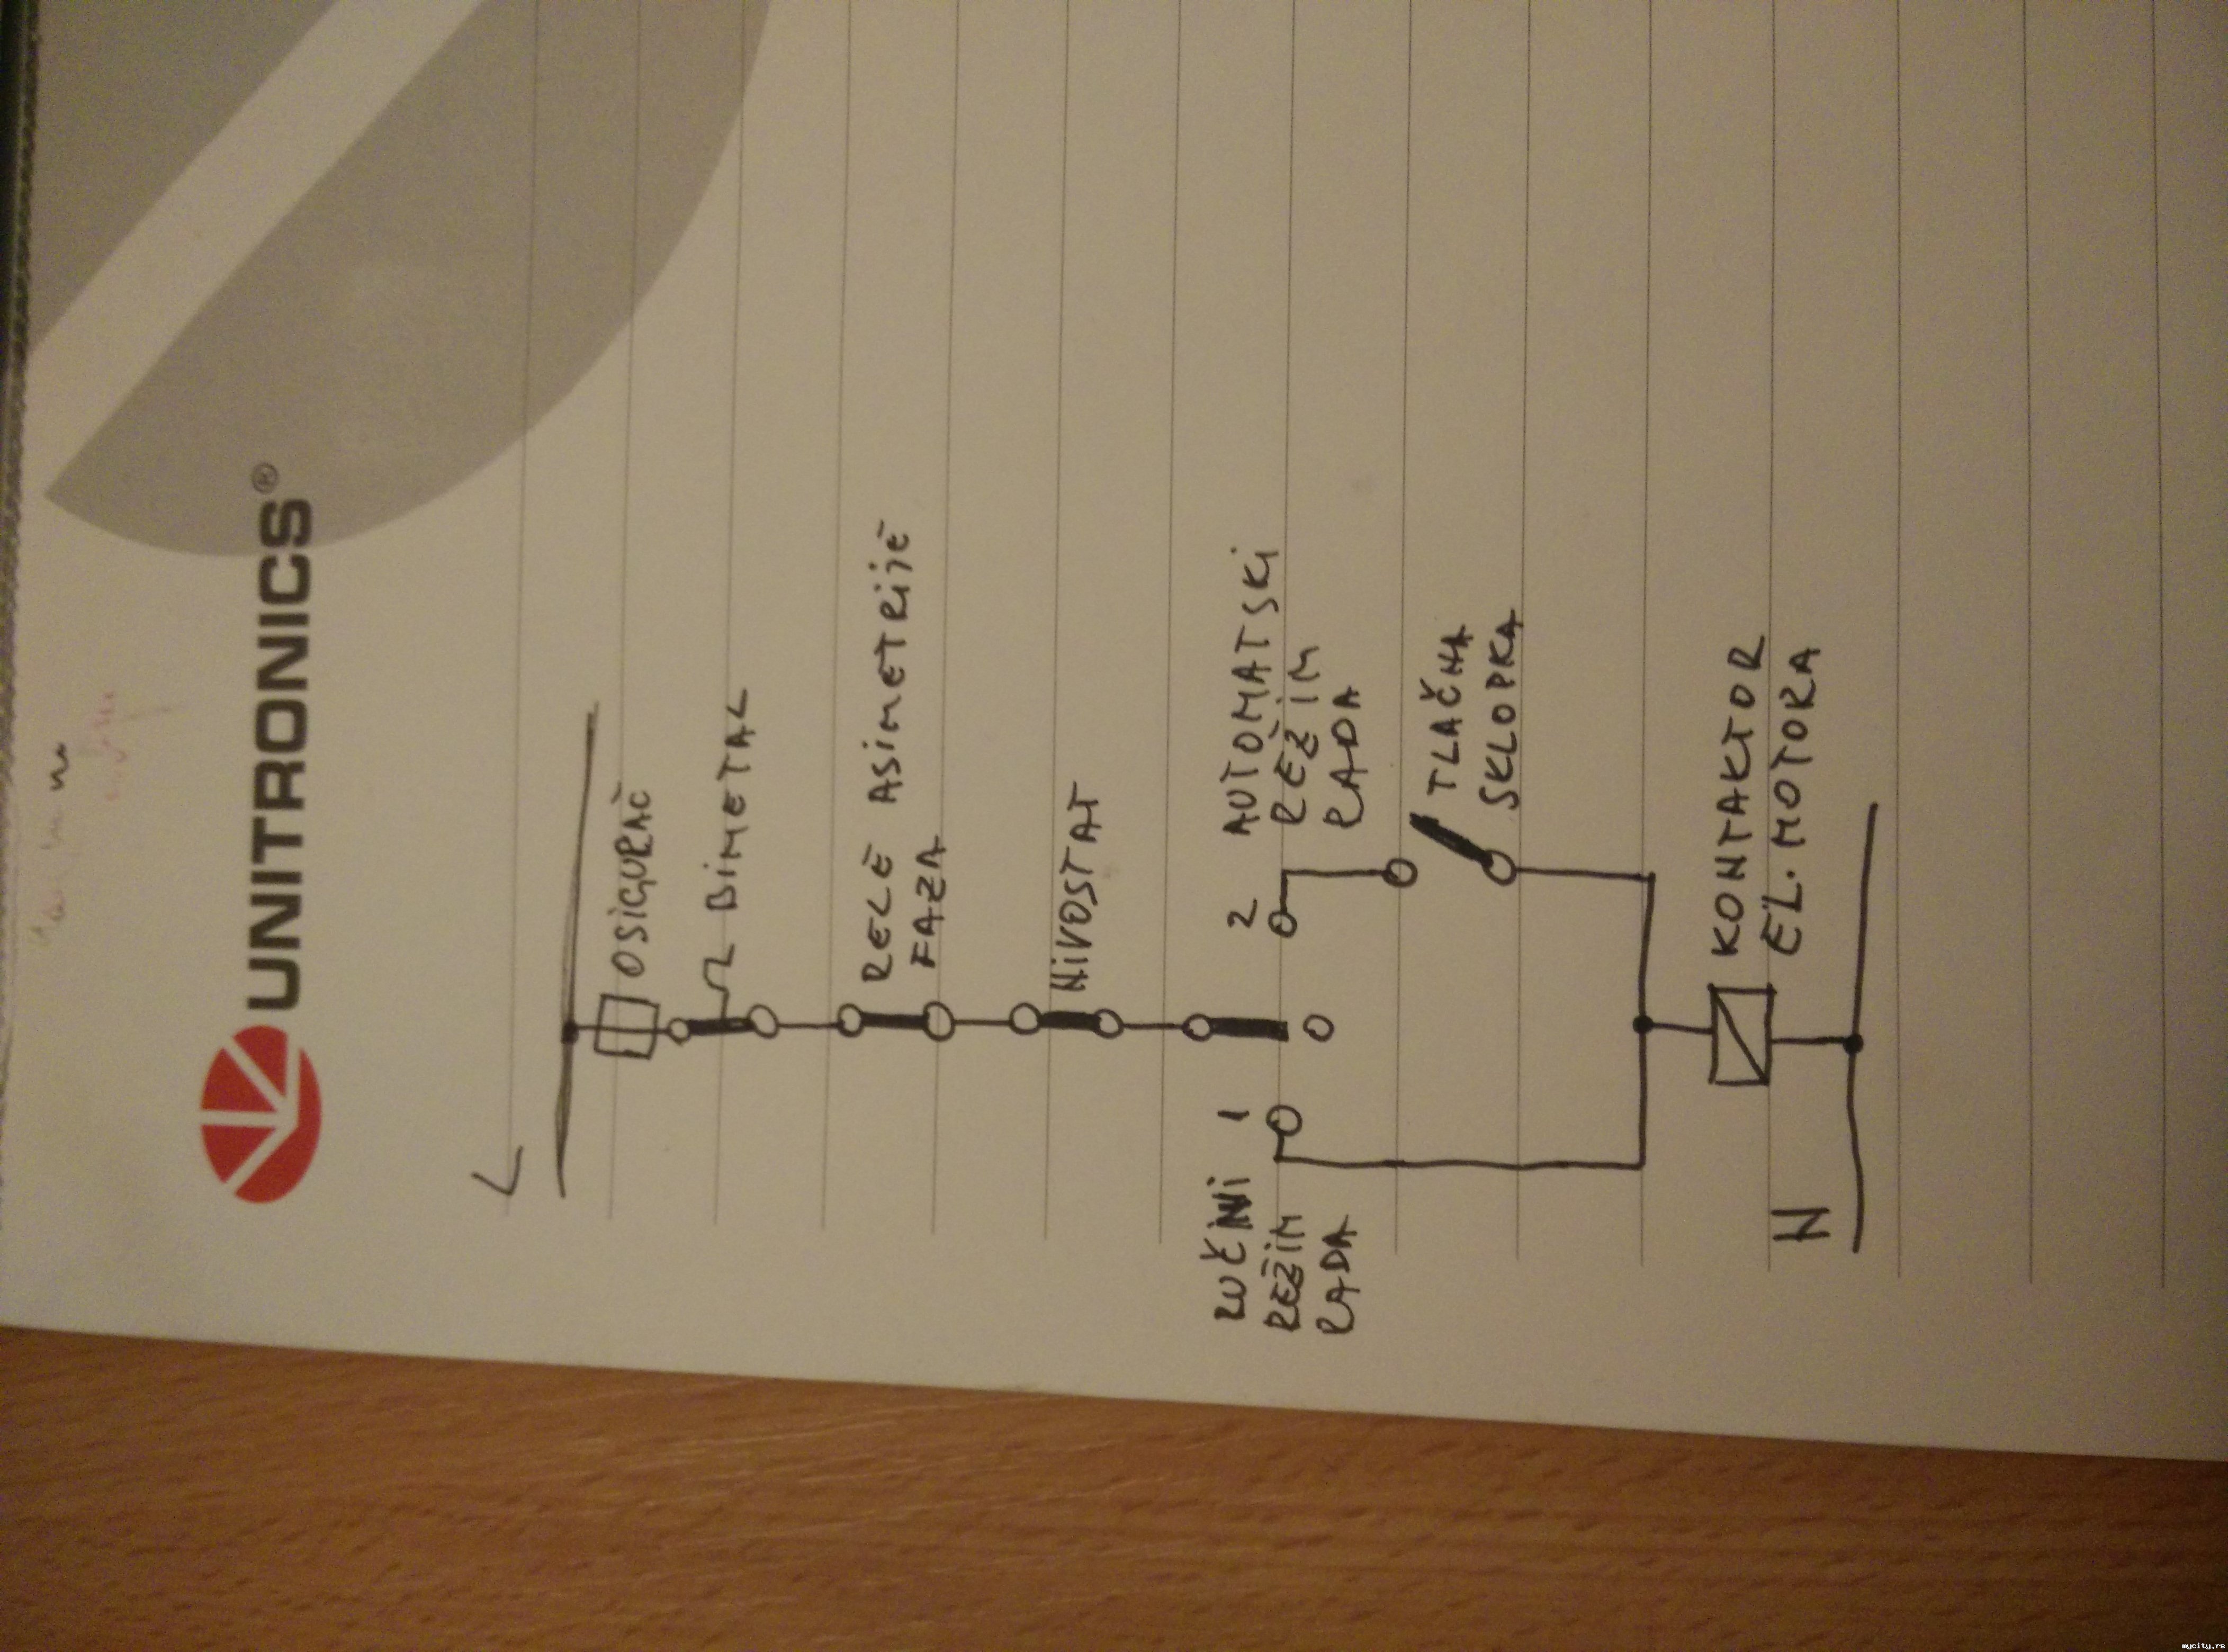 UNITRONICS®
L
OSIGURAČ
BiMETAL
RELE ASiMETRiJE
FAZA
NiVOSTAT
RUČNi
REŽiM
RADA
1
2
AUTOMATSKi
REŽiM
RADA
TLAČNA
SKLOPKA
KONTAKTOR
EL. MOTORA
N
mycity.rs